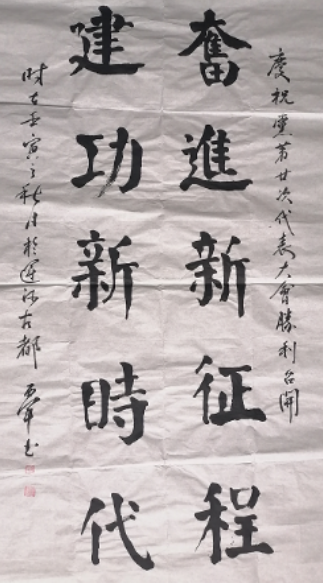 慶祝黨第廿次代表大會勝利召開
奮進新征程
建功新時代
時在壬寅之秋月於逕江古都
書